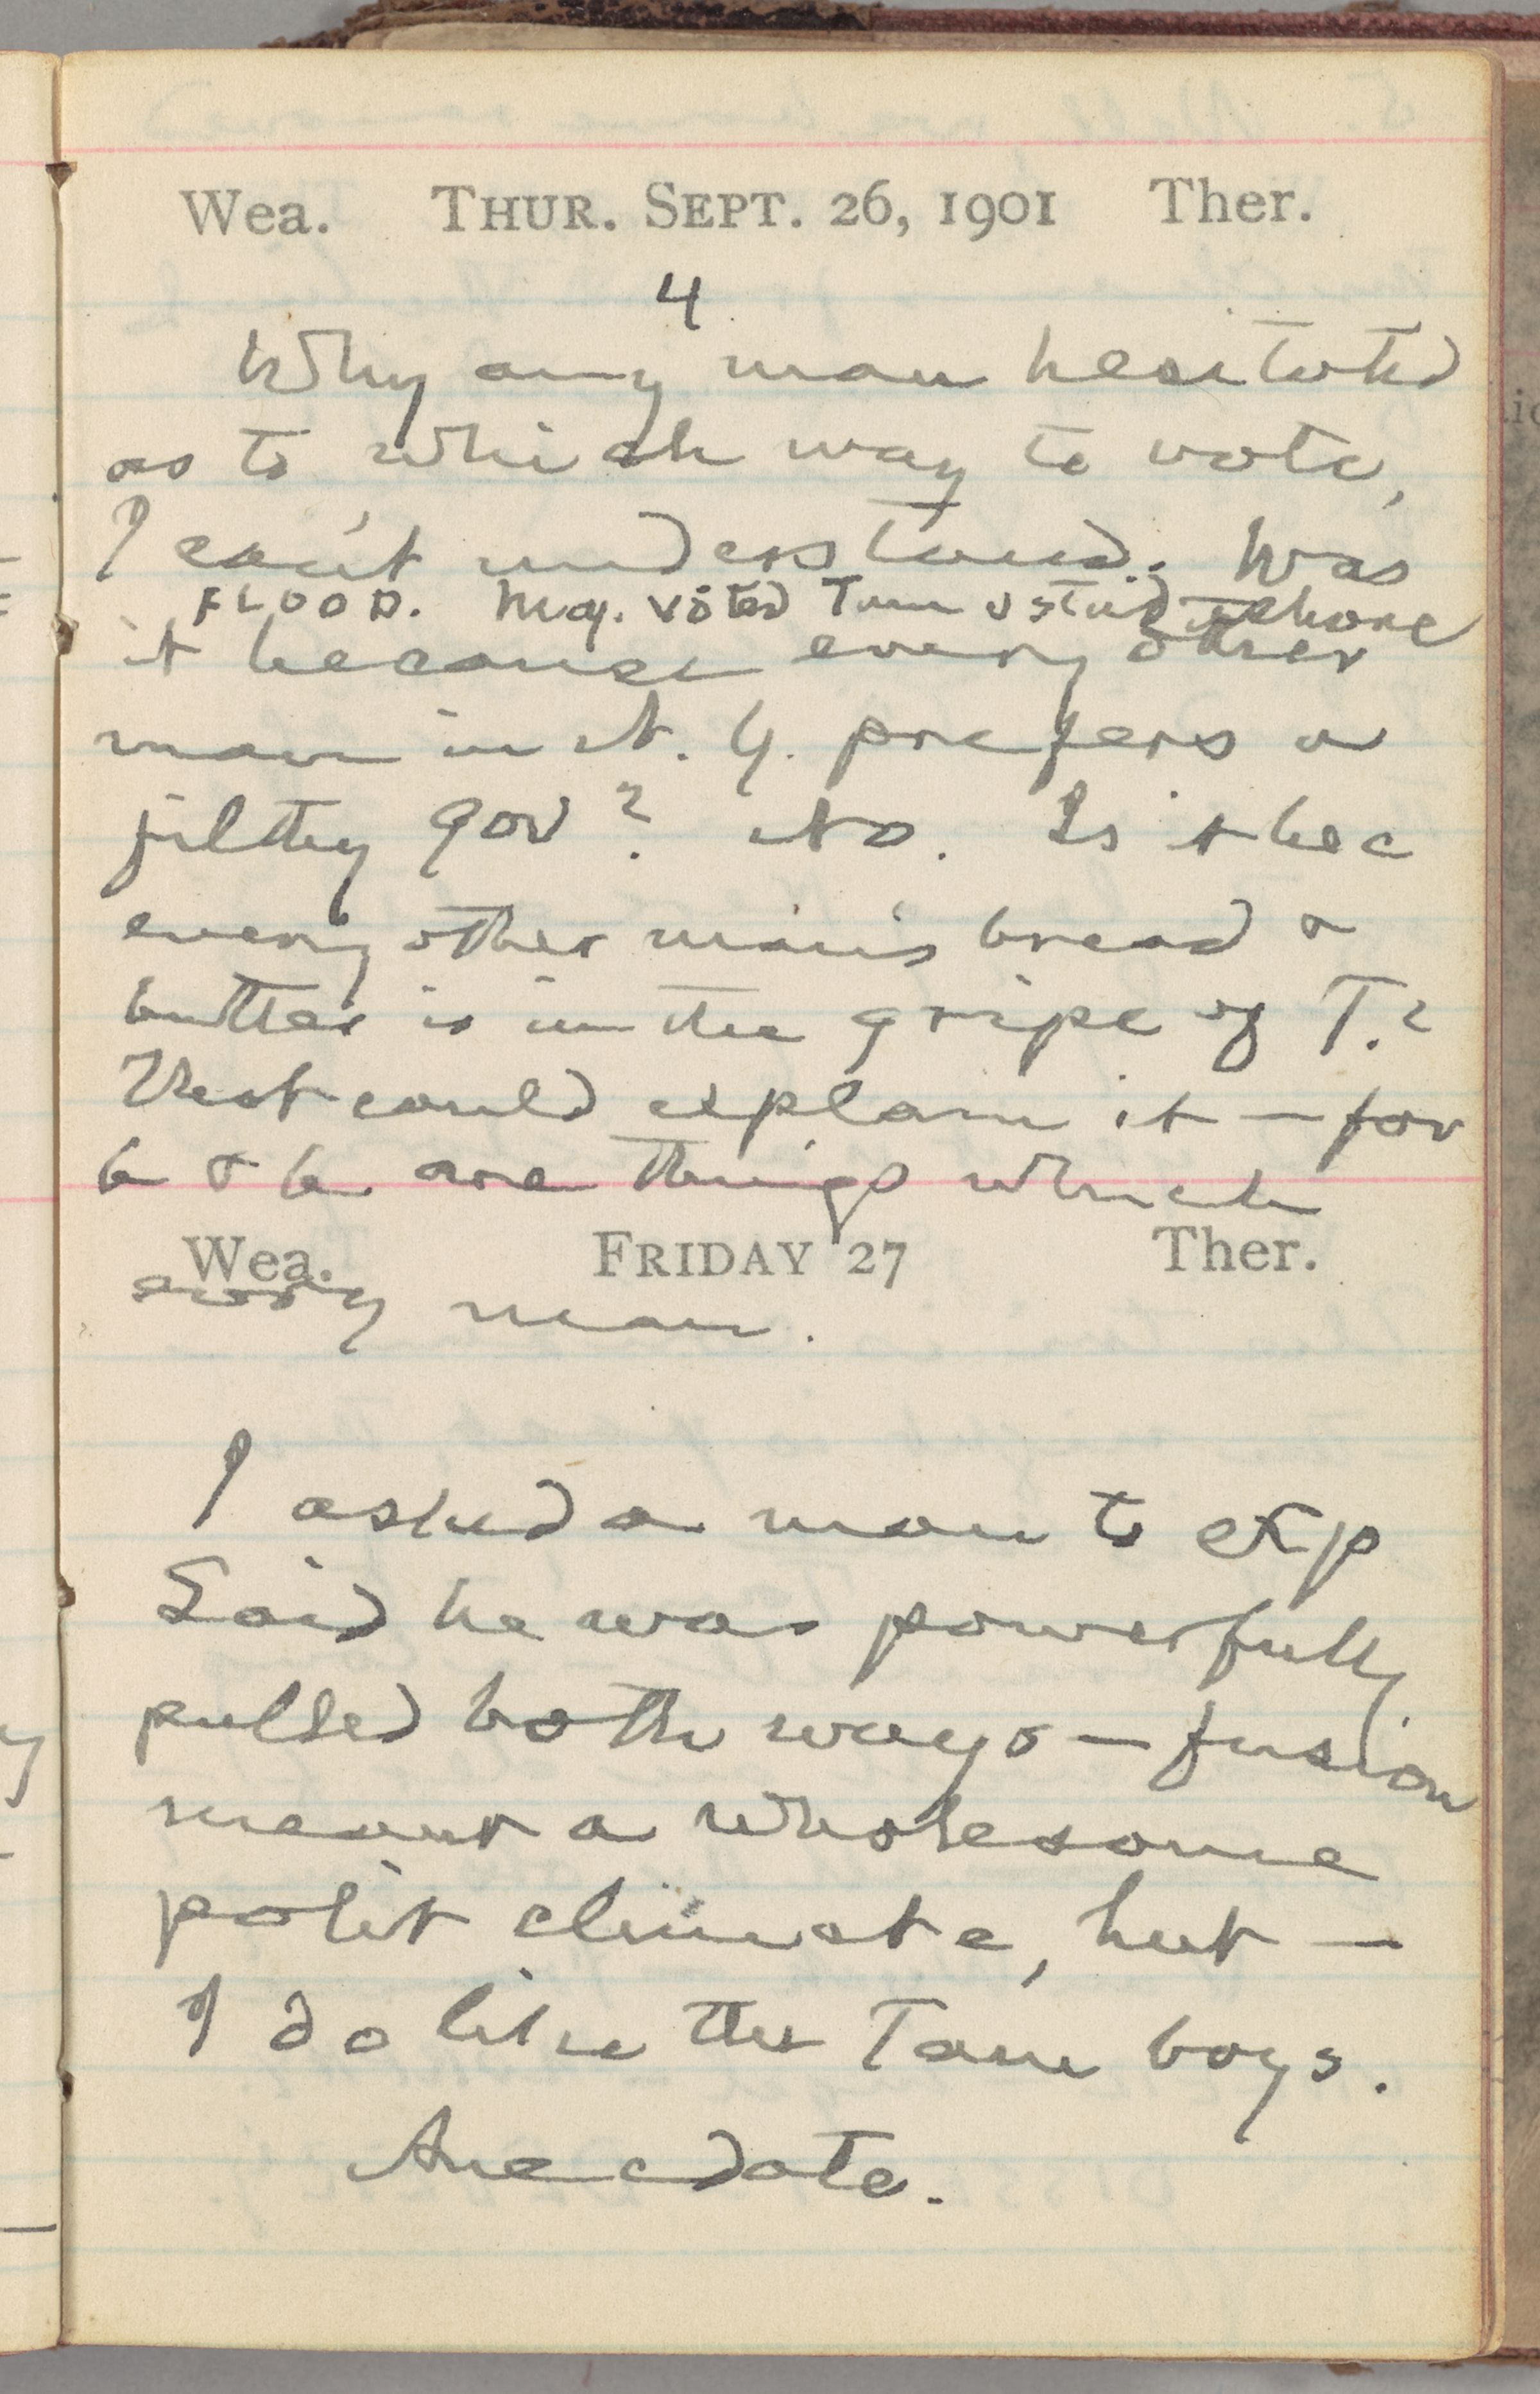 Wea. THUR. SEPT. 26, 1901 Ther.
4
Why any man hesitated
as to which way to vote,
I can't understand. Was
FLOOD. Maj. voted Tam & stuid
it because every other
man in N. Y. prefers a
filthy gov? No. Is it bec
every other man's bread &
butter is in the gripe of T.?
That could explain it — for
b & b. are things which
Wea. FRIDAY 27 Ther.
every man.
I asked a man to exp
Said he was powerfully
pulled both ways — fusion
meant a wholesome
polit climate, but —
I do like the Tam boys.
Anecdote.